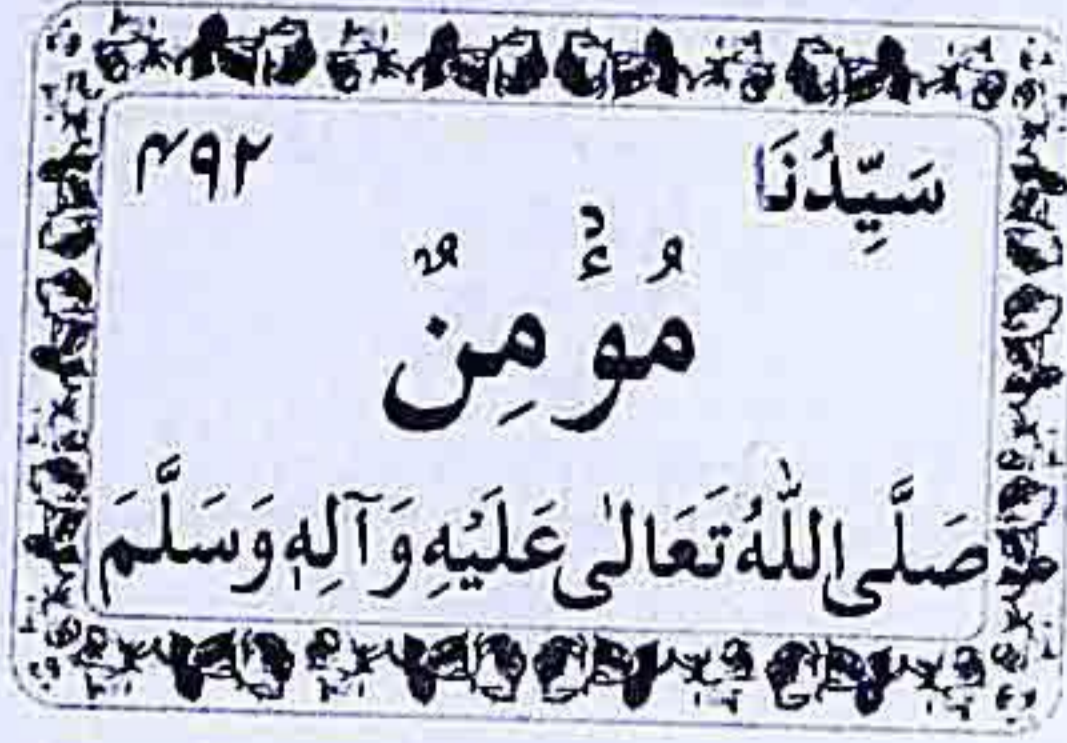 سَيِّدُنَا ۴۹۲
مُؤْمِنٌ
صَلَّى اللّٰهُ تَعَالٰى عَلَيْهِ وَآلِهٖ وَسَلَّمَ